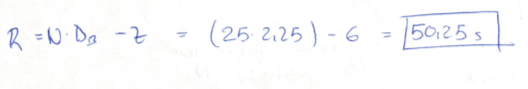 R = N · D_B - Z = (25 · 2,25) - 6 = 50,25 s